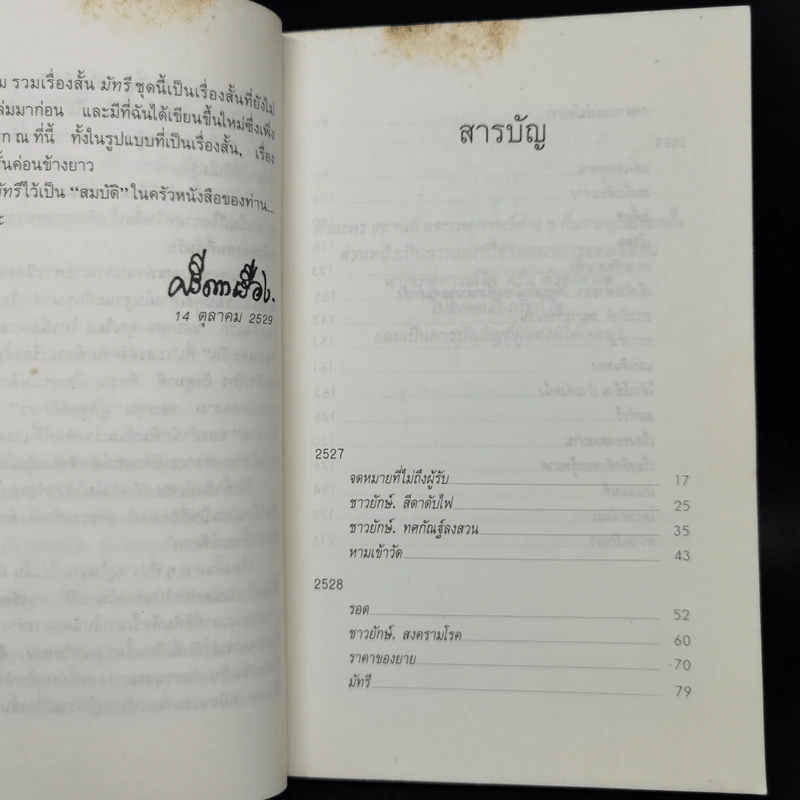 ม รวมเรื่องสั้น มัทรี ชุดนี้เป็นเรื่องสั้นที่ยังไม่
ล่มมาก่อน และมีที่ฉันได้เขียนขึ้นใหม่ซึ่งเพิ่ง
รก ณ ที่นี้ ทั้งในรูปแบบที่เป็นเรื่องสั้น, เรื่อง
ั้นค่อนข้างยาว
มัทรีไว้เป็น “สมบัติ” ในครัวหนังสือของท่าน...
ะ
ศรีดาวเรือง.
14 ตุลาคม 2529
สารบัญ
2527
จดหมายที่ไม่ถึงผู้รับ 17
ชาวยักษ์. สีดาดับไฟ 25
ชาวยักษ์. ทศกัณฐ์ลงสวน 35
หามเข้าวัด 43
2528
รอด 52
ชาวยักษ์. สงครามโรค 60
ราคาของยาย 70
มัทรี 79